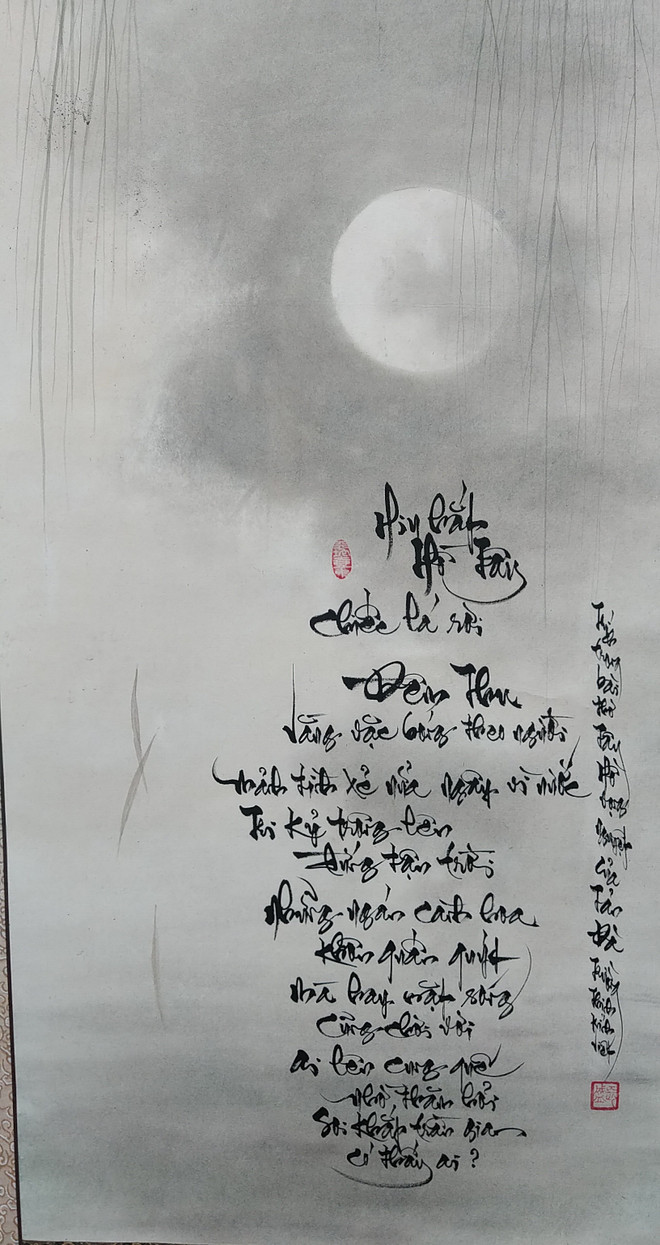 Hiu hắt
Hồ Tây
Chiếc lá rơi
Đêm Thu
Vằng vặc bóng theo người
Mảnh tình xẻ nửa ngây vì nước
Tri kỷ trông lên
Đứng tận trời
Những ngán cành hoa
khôn quấn quýt
Mà hay mặt sóng
Cũng chơi vơi
Ai lên cung quế
nhờ thăm hỏi
Soi khắp trần gian
có thấy ai?
Trích trong bài thơ Tây Hồ vọng nguyệt của Tản Đà kính viết